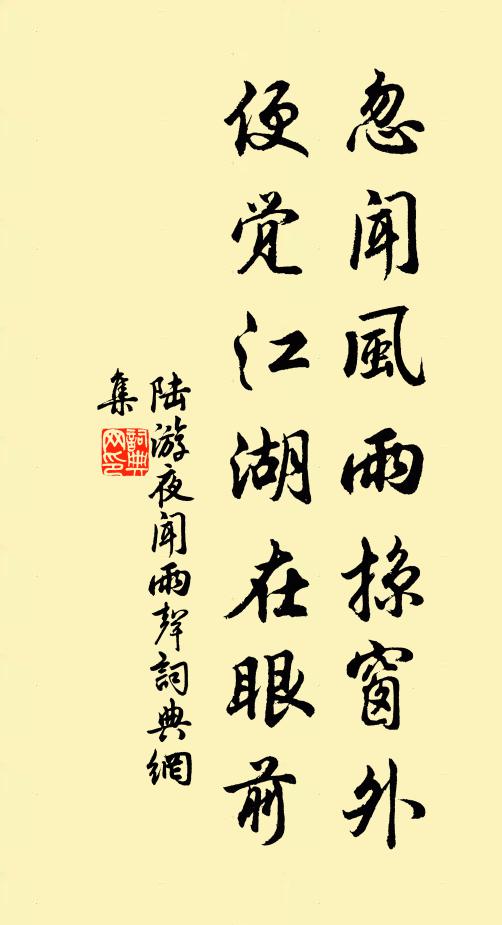 忽闻風雨掠窗外
便觉江湖在眼前
陆游夜闻雨聲詞典網
集
詞典网印